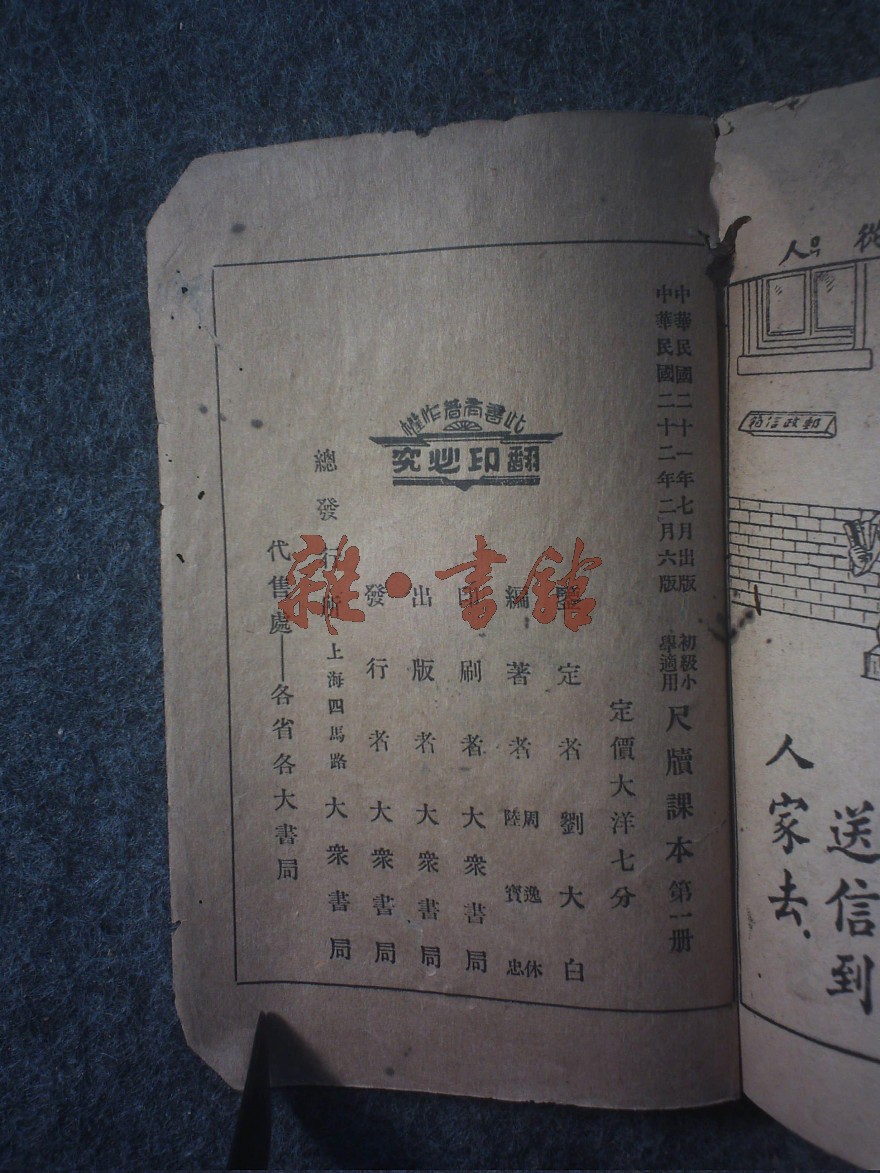 中華民國二十一年七月出版
中華民國二十二年二月六版
初級小學適用
尺牘課本第一册
定價大洋七分
鑒定者劉大白
編著者周逸休
陸寶忠
印刷者大衆書局
出版者大衆書局
發行者大衆書局
總發行所上海四馬路大衆書局
代售處——各省各大書局
此書有著作權
翻印必究
雜·書館
從
人
郵政信箱
送信到
人家去